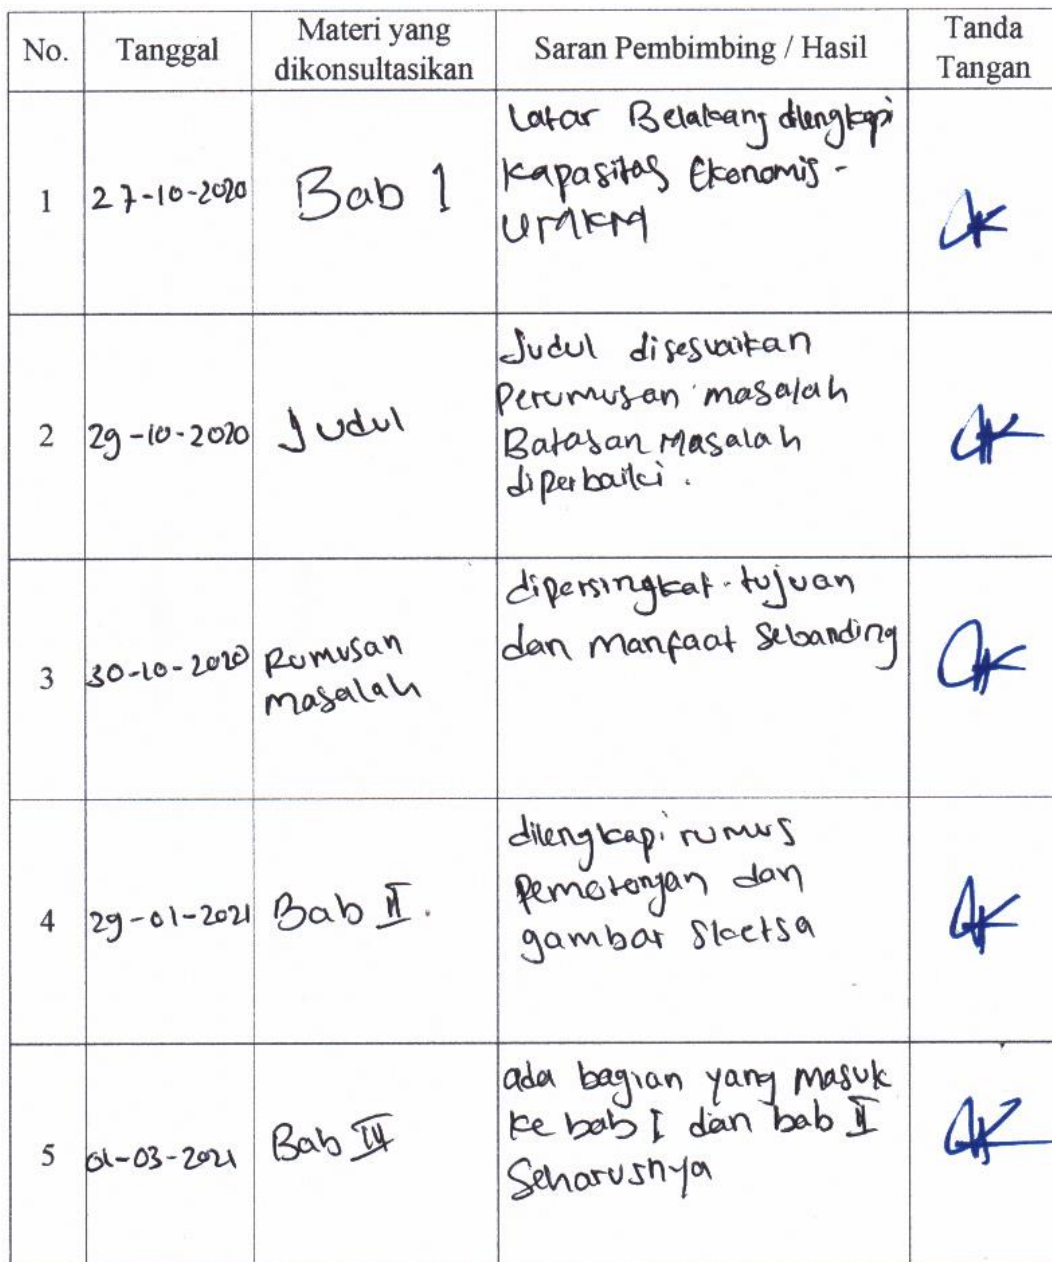 No. Tanggal Materi yang dikonsultasikan Saran Pembimbing / Hasil Tanda Tangan
1 27-10-2020 Bab 1 Latar Belakang dilengkapi
Kapasitas Ekonomis -
UMKM
2 29-10-2020 Judul Judul disesuaikan
Perumusan masalah
Batasan Masalah
diperbaiki.
3 30-10-2020 Rumusan masalah dipersingkat. tujuan
dan Manfaat Sebanding
4 29-01-2021 Bab II. dilengkapi rumus
Pemotongan dan
gambar Sketsa
5 01-03-2021 Bab ada bagian yang Masuk
ke bab I dan bab II
Seharusnya